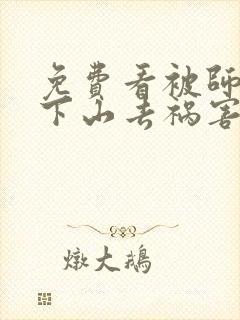 免費看被師
下山去禍害
燉大鵝